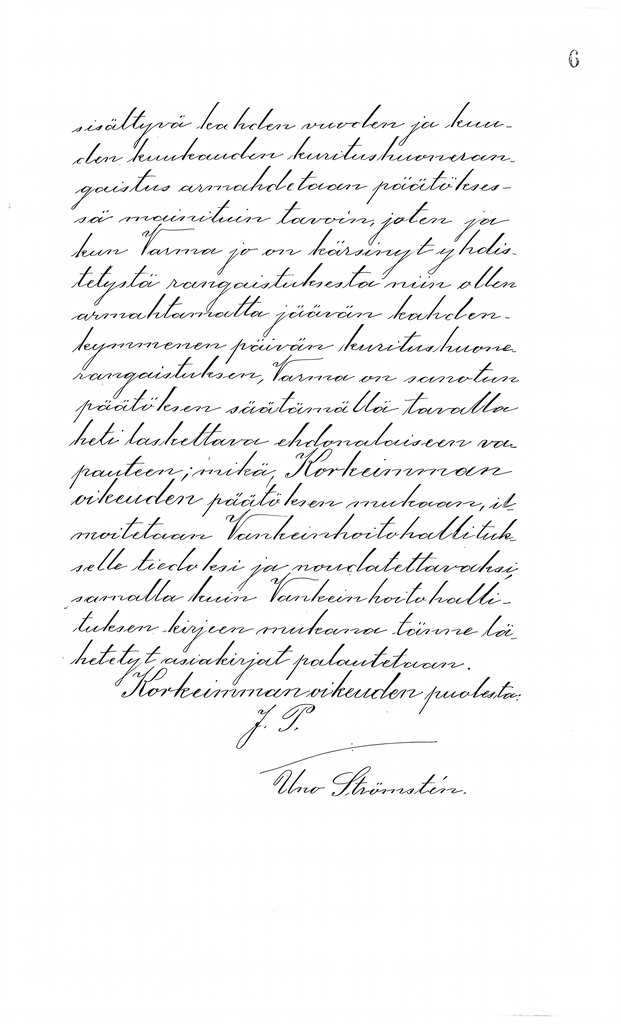 6
sisältyvä kahden vuoden ja kuu-
den kuukauden kuritushuoneran-
gaistus armahdetaan päätökses-
sä mainituin tavoin, joten ja
kun Varma jo on kärsinyt yhdis-
tetystä rangaistuksesta niin ollen
armahtamatta jäävän kahden-
kymmenen päivän kuritushuone-
rangaistuksen, Varma on sanotun
päätöksen säätämällä tavalla
heti laskettava ehdonalaiseen va-
pauteen; mikä, Korkeimman
oikeuden päätöksen mukaan, il-
moitetaan Vankeinhoitohallituk-
selle tiedoksi ja noudatettavaksi,
samalla kuin Vankeinhoitohalli-
tuksen kirjeen mukana tänne lä-
hetetyt asiakirjat palautetaan.
Korkeimman oikeuden puolesta:
J. P.
Uno Strömstén.